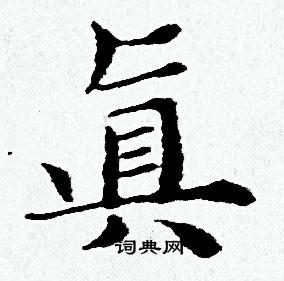 眞
词典网